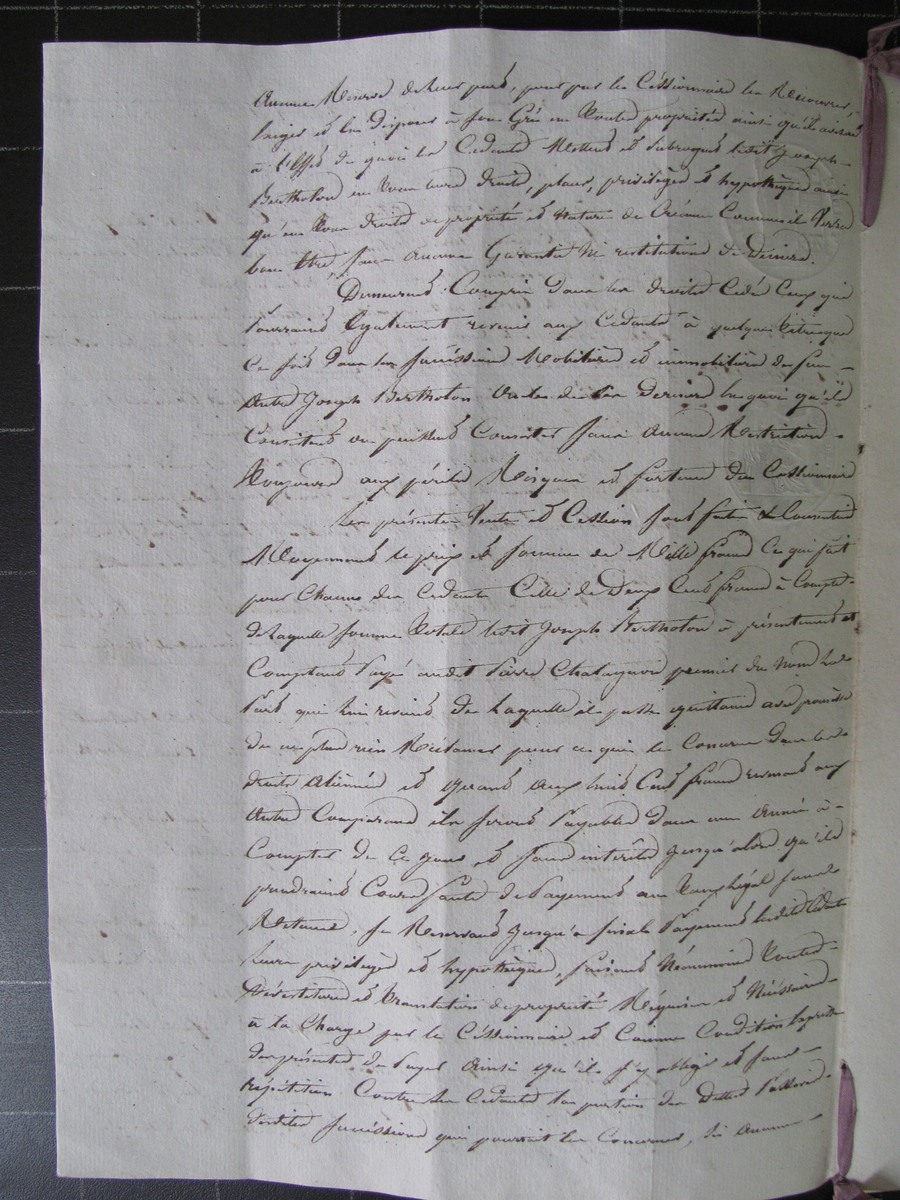 aucune Réserve de leur part, pour par le Cessionnaire les Recouvrer,
exiger et en disposer à son Gré en Toute propriété ainsi qu'il avisera
à l'effet de quoi les Cedants Mettent et subrogent ledit Joseph
Bertholon en Tous leurs droits, place, privilèges et hypothèque ainsi
qu'en Tous droits de propriété et Nature de Créance Comme il Verra
bon être, sans aucune Garantie Ni restitution de Deniers.
Demeurent Compris dans les droits Cédés Ceux qui
Pourraient également revenir aux Cedants à quelque titre que
Ce soit dans les Successions Mobilière et immobilière de feu
autre Joseph Bertholon de ce dernier les quoi qu'il
Consistent ou puissent Consister sans aucune Restriction
Toujours aux périls Risques et fortune du Cessionnaire
Les présentes Vente et Cession sont faites et Consenties
Moyennant le prix et somme de Mille francs Ce qui fait
pour Chacun des Cedants Celle de Deux Cent francs à Compte
de laquelle somme Totale ledit Joseph Bertholon a présentement et
Comptant Payé audit Pierre Chatagnon premier du Nom la
Part qui lui revient de laquelle il passe quittance avec promesse
de ne plus rien Réclamer pour ce qui le Concerne dans les
droits aliénés et quant aux huit Cent francs revenant aux
autres Comparants ils seront Payables dans une Année à
Compter de Ce jour et sans intérêts jusqu'alors qu'ils
prendraient Cours faute de Payement au Taux légal sans
Retenue, se Réservant jusqu'à final Payement lesdits Cedants
leurs privilège et hypothèque, faisant Néanmoins Toutes
Dévestiture et Translation de propriété Réquises et Nécessaires
à la Charge par le Cessionnaire et Comme Condition expresse
des présentes de Payer Ainsi qu'il s'y oblige et sans
répétition Contre les Cedants la portion des Dettes Passives
desdites Successions qui pourrait les Concerner, si aucune